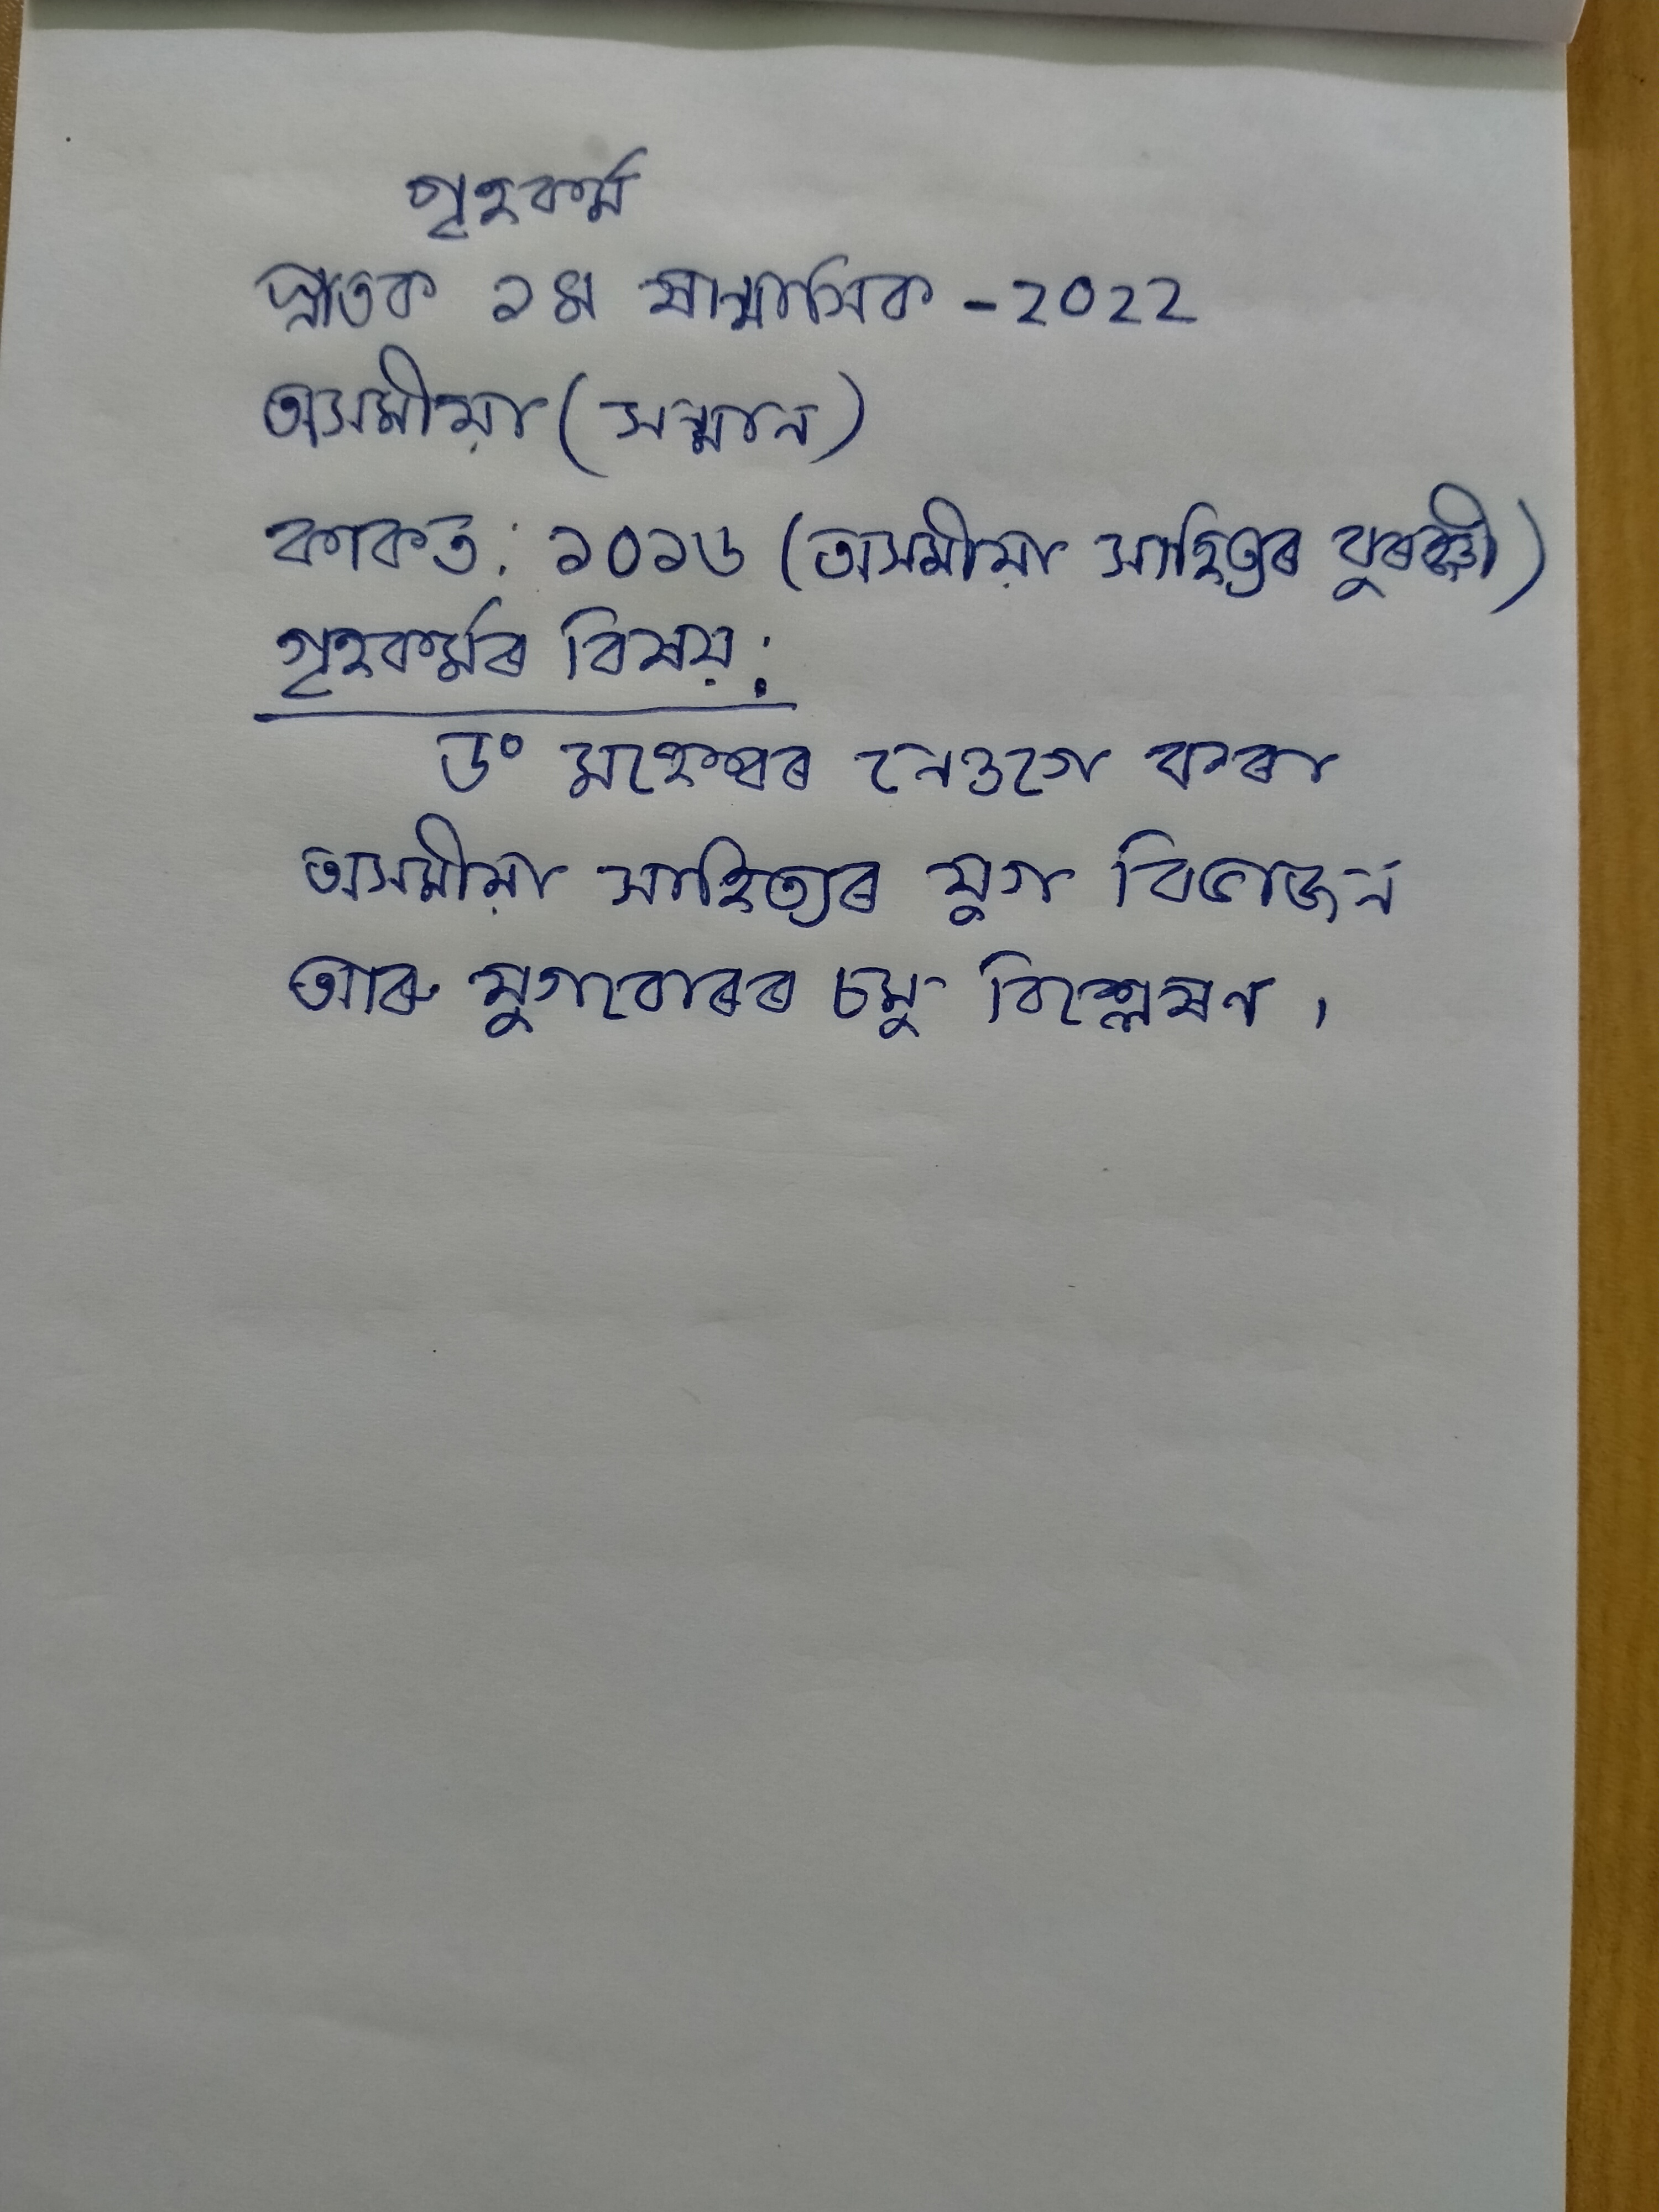 গৃহকৰ্ম
স্নাতক ১ম ষান্মাসিক -2022
অসমীয়া (সন্মান)
কাকত: ১০১৬ (অসমীয়া সাহিত্যৰ বুৰঞ্জী)
গৃহকৰ্মৰ বিষয়:
ড° মহেশ্বৰ নেওগে কৰা
অসমীয়া সাহিত্যৰ যুগ বিভাজন
আৰু যুগবোৰৰ চমু বিশ্লেষণ ,